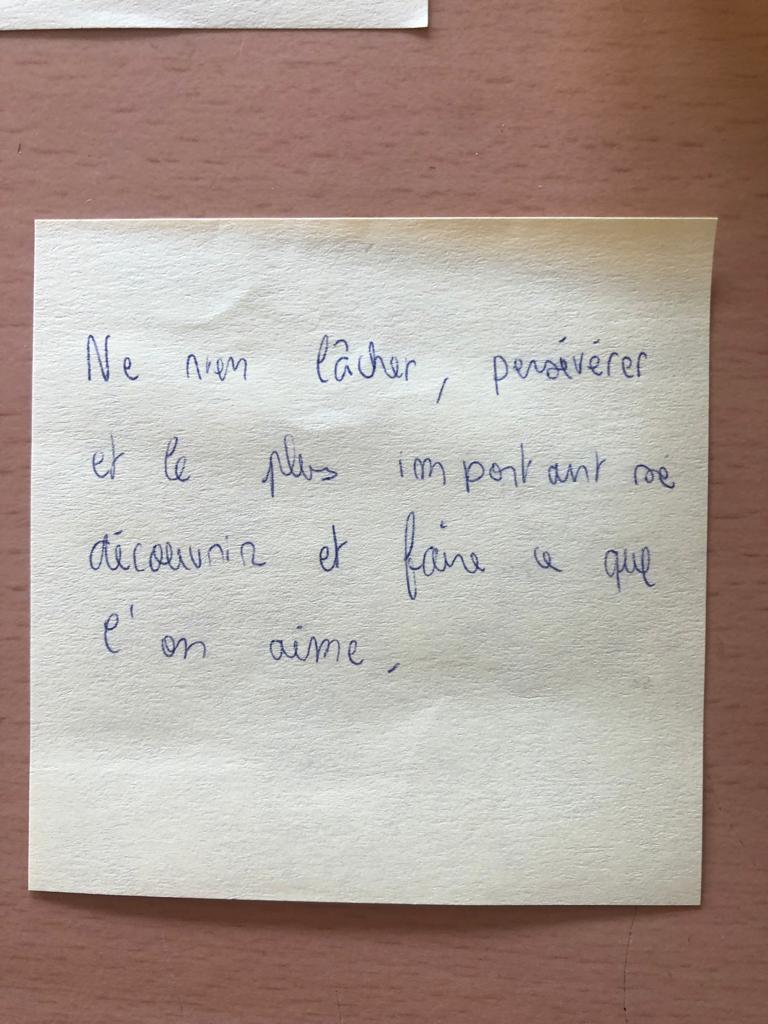 Ne rien lâcher, persévérer
et le plus important se
découvrir et faire ce que
l'on aime.